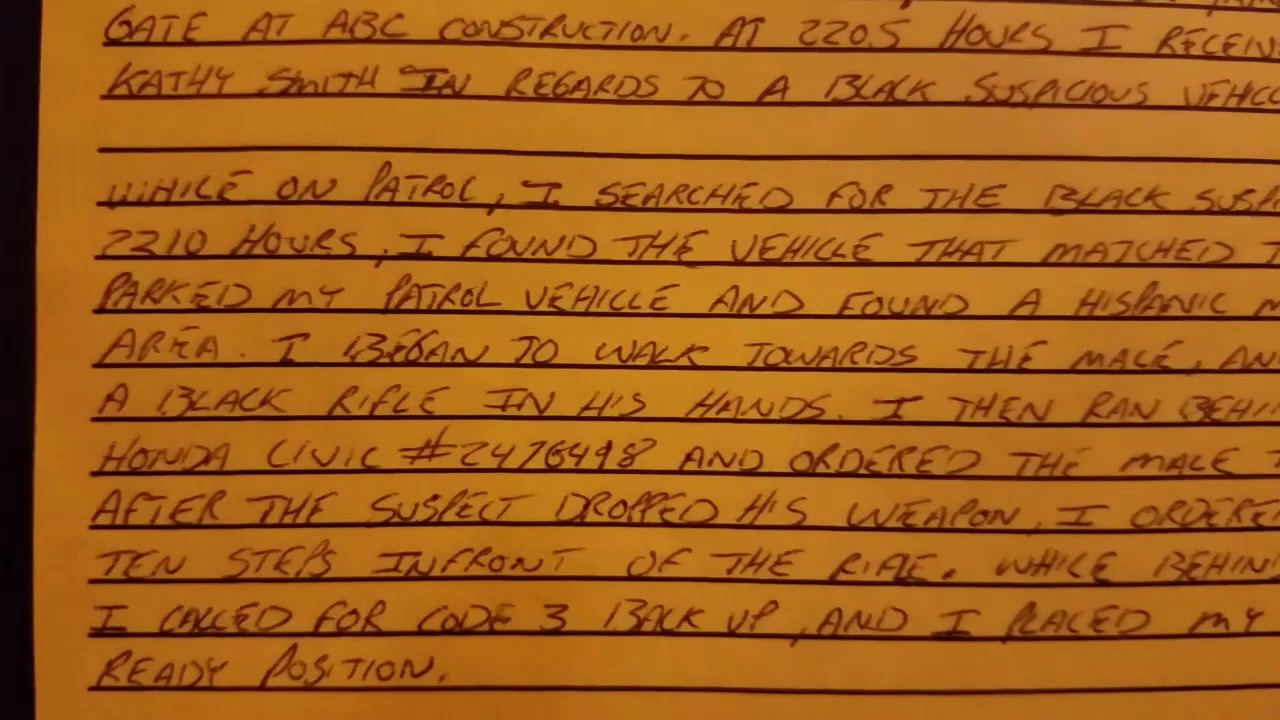 GATE AT ABC CONSTRUCTION. AT 2205 HOURS I RECEIV
KATHY SMITH IN REGARDS TO A BLACK SUSPICIOUS VEHIC
WHILE ON PATROL, I SEARCHED FOR THE BLACK SUSP
2210 HOURS, I FOUND THE VEHICLE THAT MATCHED T
PARKED MY PATROL VEHICLE AND FOUND A HISPANIC M
AREA. I BEGAN TO WALK TOWARDS THE MALE, AN
A BLACK RIFLE IN HIS HANDS. I THEN RAN BEHI
HONDA CIVIC #2476498 AND ORDERED THE MALE T
AFTER THE SUSPECT DROPPED HIS WEAPON, I ORDERE
TEN STEPS INFRONT OF THE RIFLE. WHILE BEHIN
I CALLED FOR CODE 3 BACK UP, AND I PLACED MY
READY POSITION.